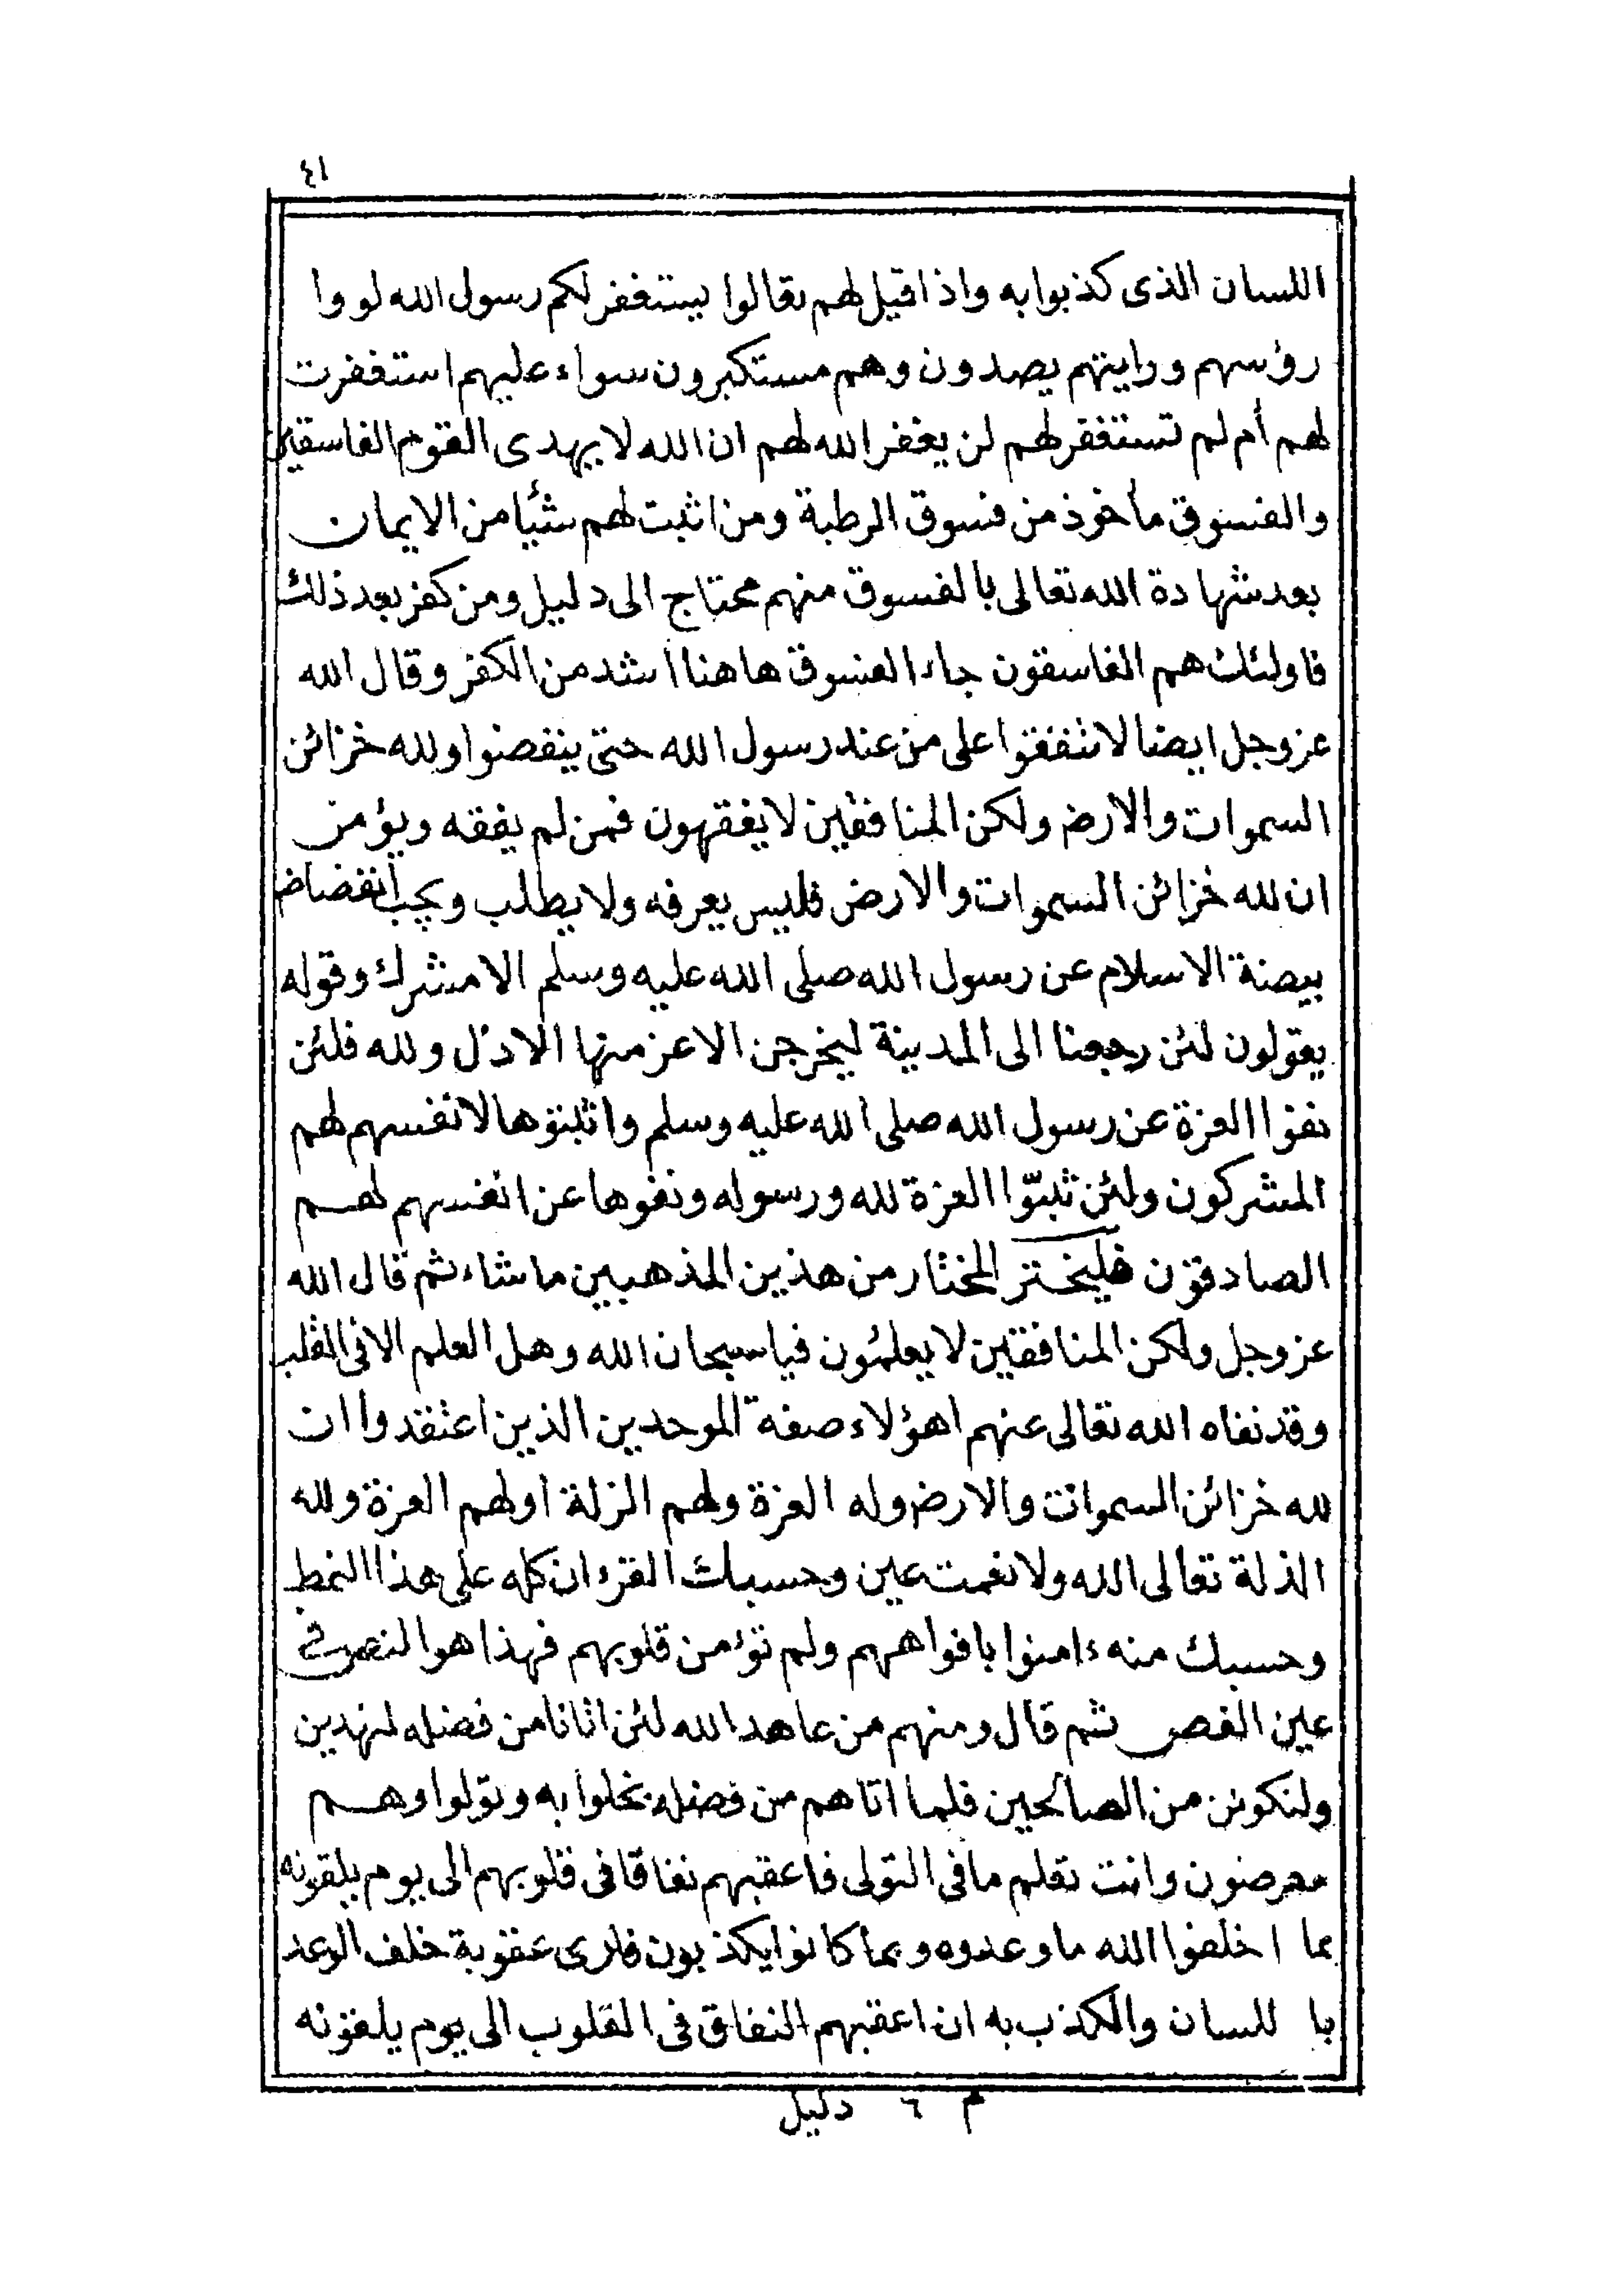 ٤١
اللسان الذى كذبوا به واذا قيل لهم تعالوا يستغفر لكم رسول الله لووا
رؤسهم ورايتهم يصدون وهم مستكبرون سواء عليهم استغفرت
لهم أم لم تستغفر لهم لن يغفر الله لهم ان الله لا يهدى القوم الفاسقين
والفسوق مأخوذ من فسوق الرطبة ومن اثبت لهم شئيا من الايمان
بعد شهادة الله تعالى بالفسوق منهم محتاج الى دليل ومن كفر بعد ذلك
فاولئك هم الفاسقون جاء الفسوق هاهنا اشد من الكفر وقال الله
عز وجل ايضا لا تنفقوا على من عند رسول الله حتى ينفضوا ولله خزائن
السموات والارض ولكن المنافقين لا يفقهون فمن لم يفقه ويؤمن
ان لله خزائن السموات والارض فليس يعرفه ولا يطلب ويجب انفضاض
بيضة الاسلام عن رسول الله صلى الله عليه وسلم الا مشرك وقوله
يقولون لئن رجعنا الى المدينة ليخرجن الاعز منها الاذل ولله فلئن
نفوا العزة عن رسول الله صلى الله عليه وسلم واثبتوها لانفسهم لهم
المشركون ولئن ثبتوا العزة لله ورسوله ونفوها عن انفسهم لهم
الصادقون فليختر المختار من هذين المذهبين ما شاء ثم قال الله
عز وجل ولكن المنافقين لا يعلمون فيا سبحان الله وهل العلم الا فى القلب
وقد نفاه الله تعالى عنهم اهؤلاء صفة الموحدين الذين اعتقدوا ان
لله خزائن السموات والارض وله العزة ولهم الزلة اولهم العزة ولله
الذلة تعالى الله ولا نعمت عين وحسبك القرءان كله على هذا النمط
وحسبك منه ءامنوا بافواههم ولم تؤمن قلوبهم فهذا هو النص فى
عين الفص ثم قال ومنهم من عاهد الله لئن اتانا من فضله لنهدين
ولنكونن من الصالحين فلما اتاهم من فضله بخلوا به وتولوا وهم
معرضون وانت تعلم ما فى التولى فاعقبهم نفاقا فى قلوبهم الى يوم يلقونه
بما اخلفوا الله ما وعدوه وبما كانوا يكذبون فلرى عقوبة خلف الوعد
با للسان والكذب به ان اعقبهم النفاق فى القلوب الى يوم يلقونه
م ٦ دليل